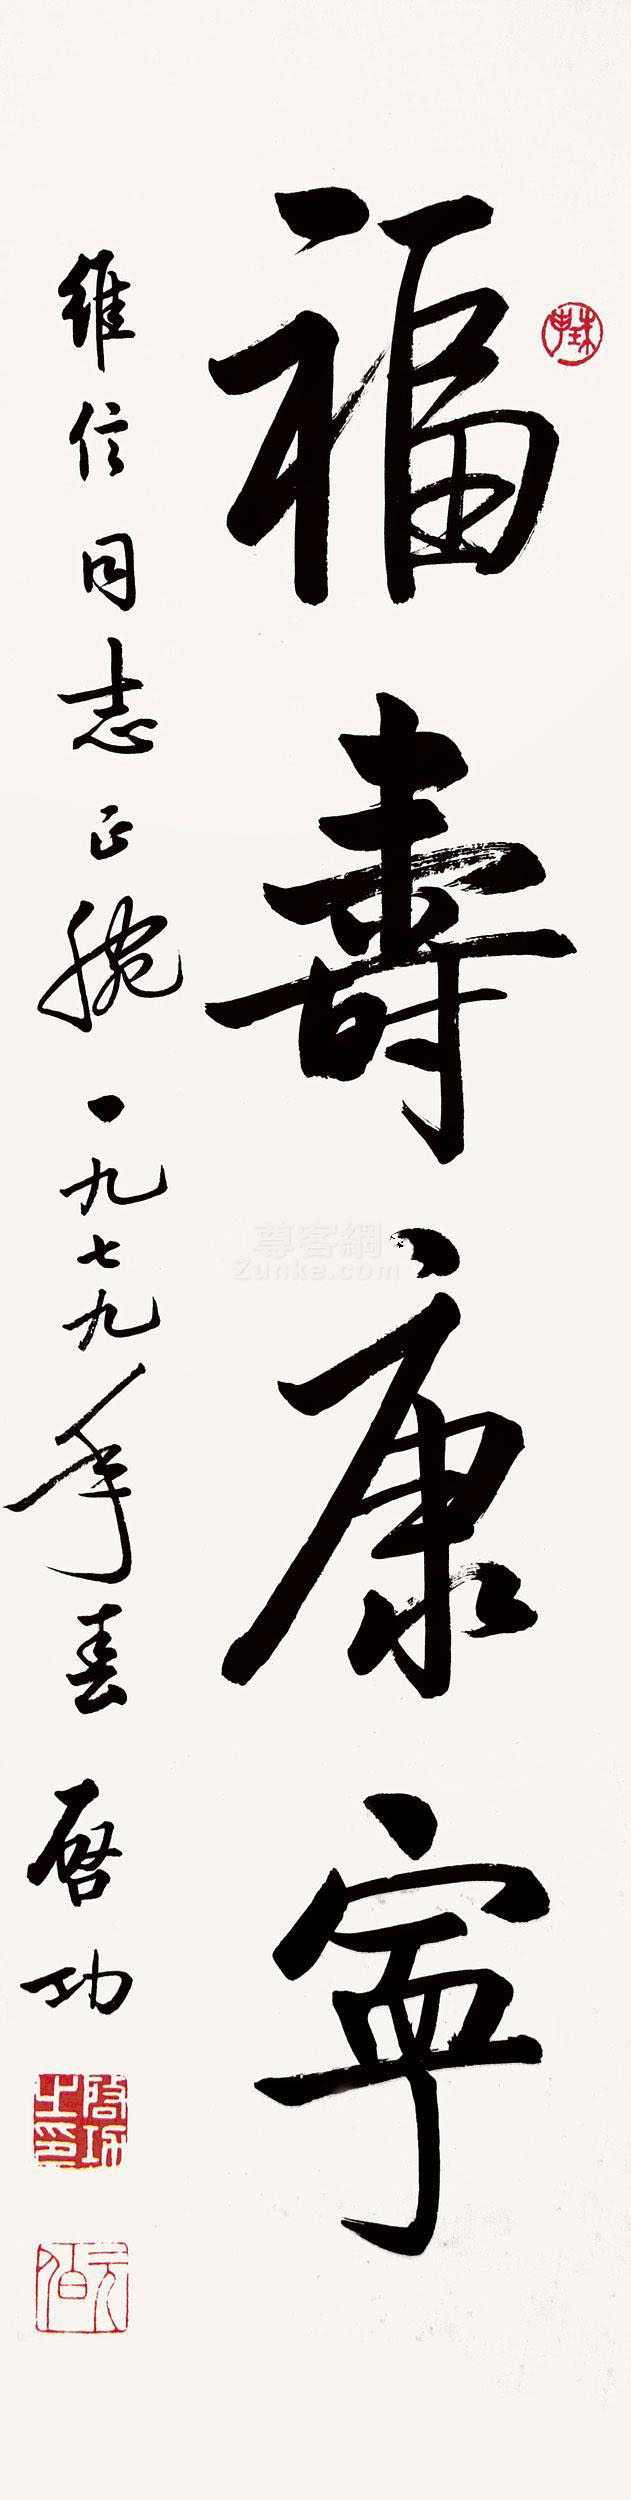 福壽康寧
維信同志正腕 一九七九年春 啓功
啓功之印
元白
尊客網
Zunke.com